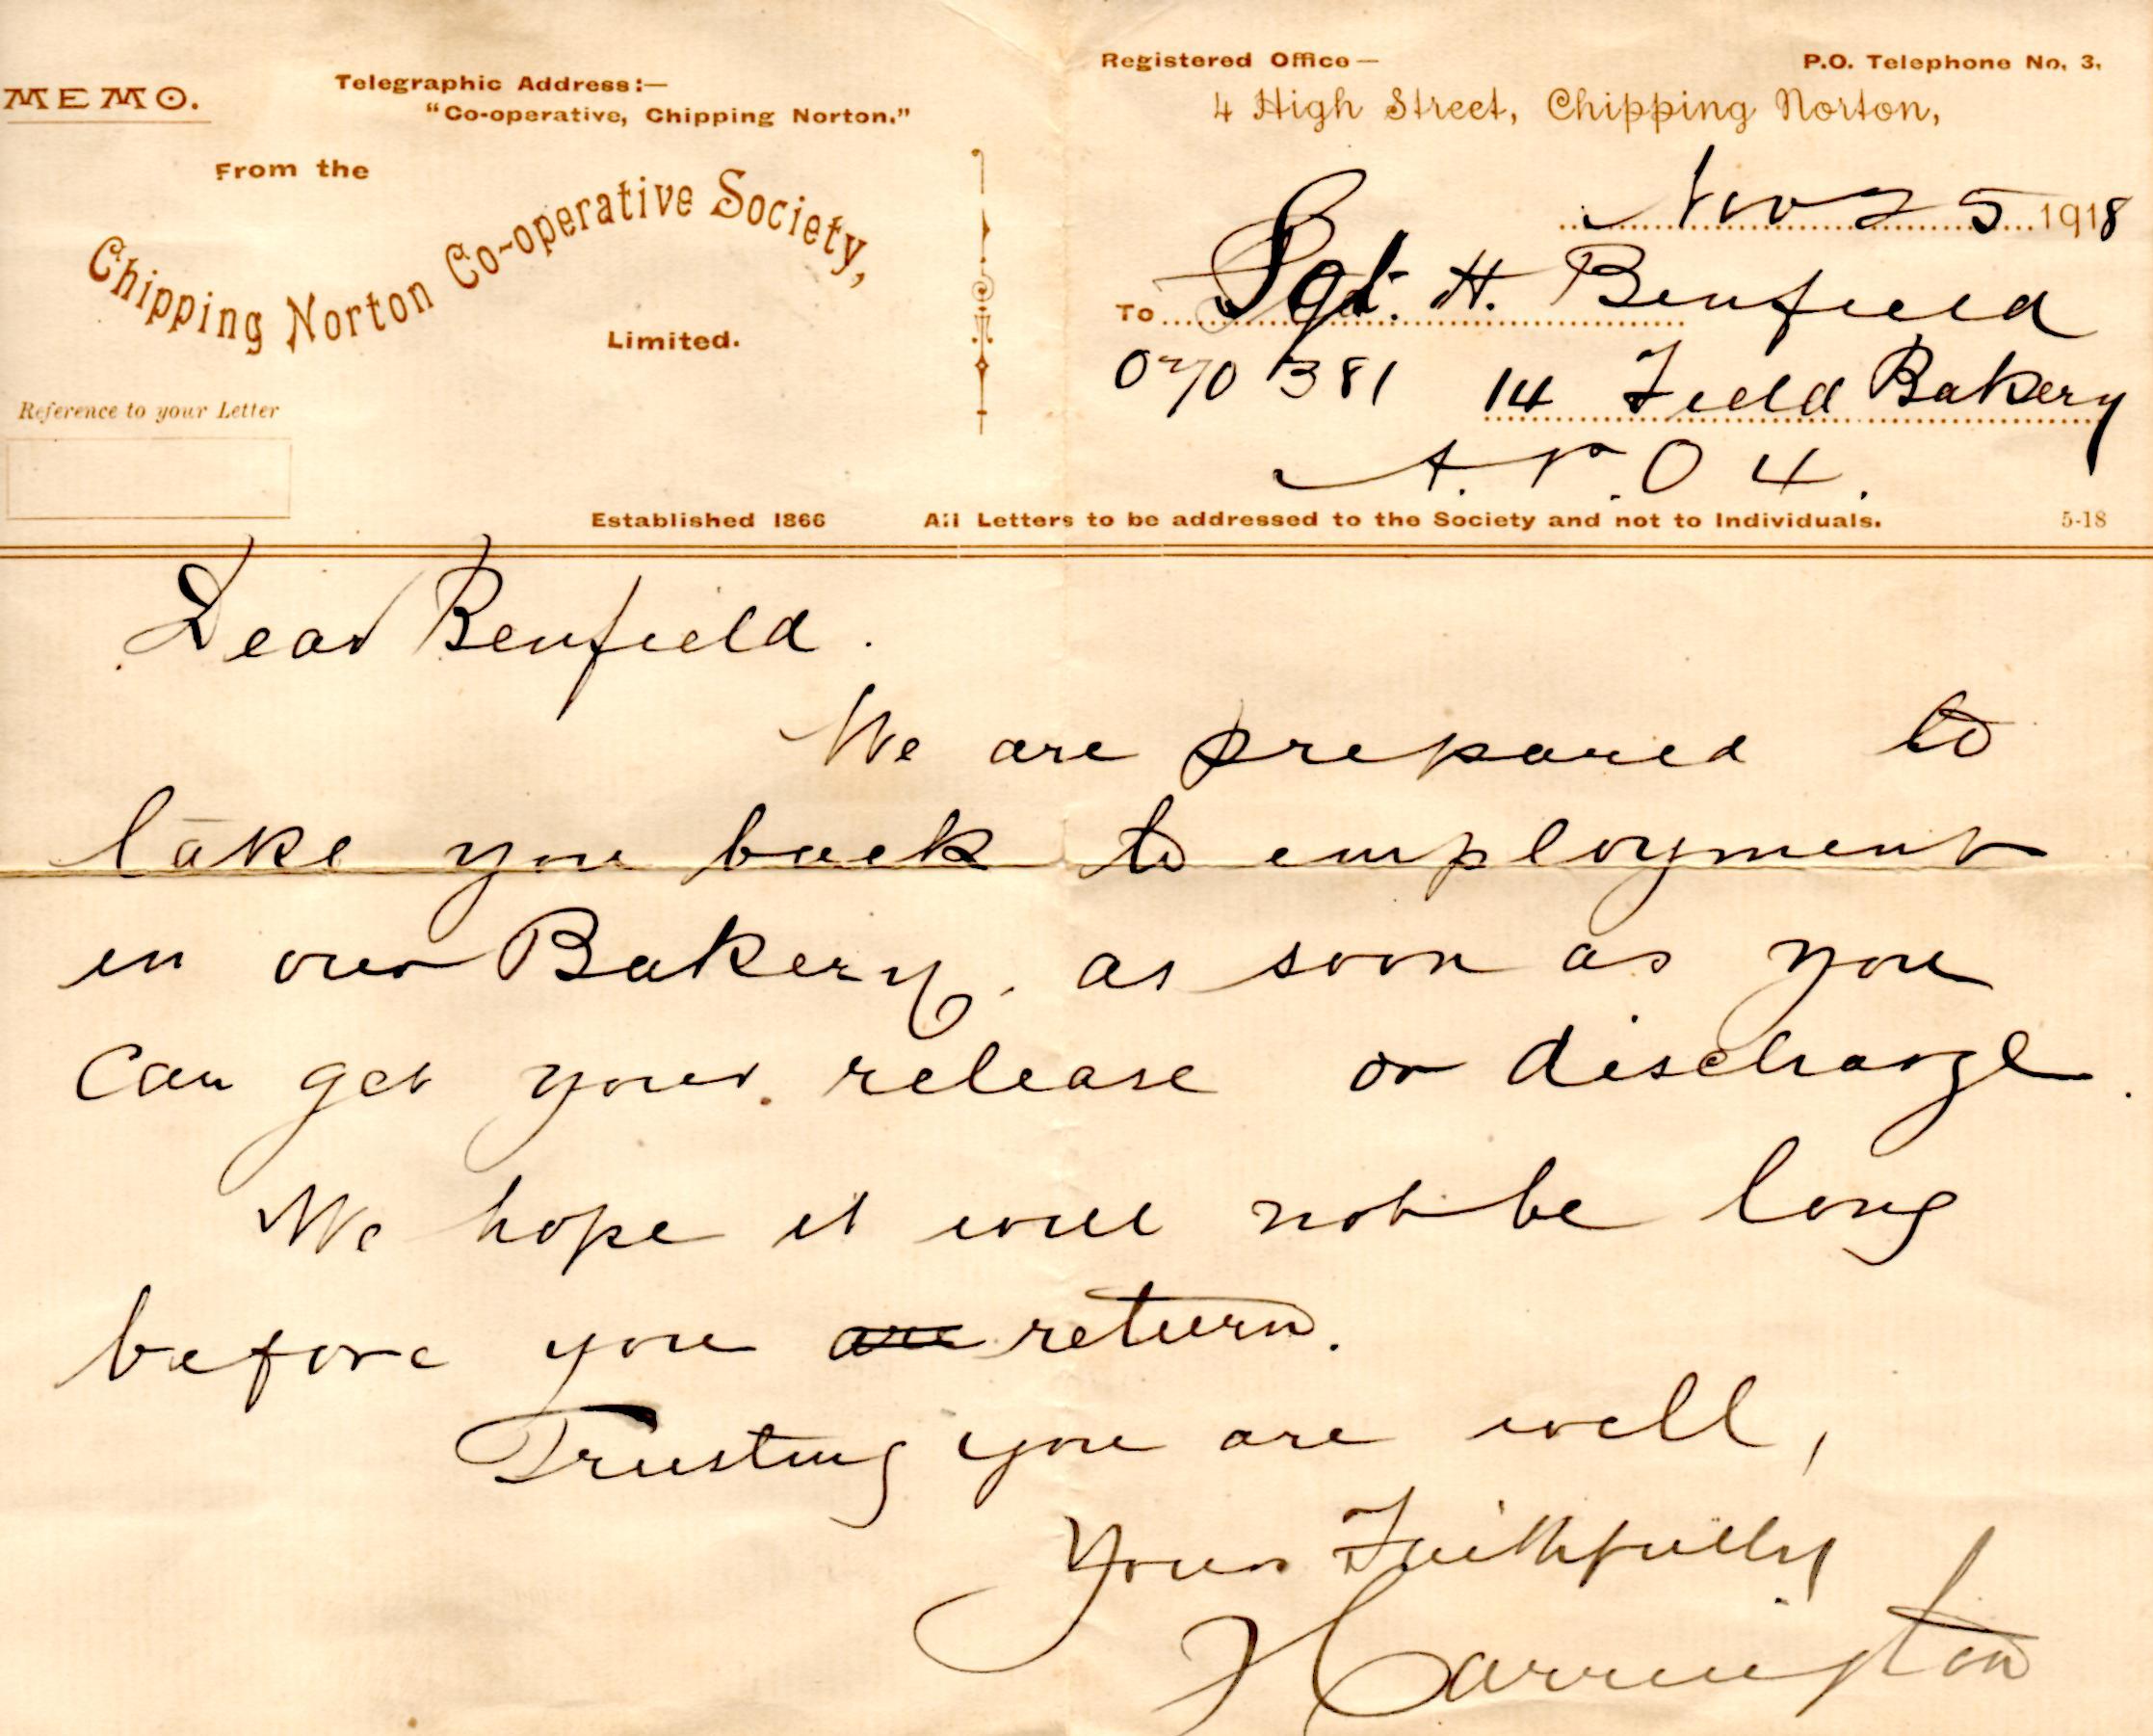 MEMO.
Telegraphic Address:—
"Co-operative, Chipping Norton."
From the
Chipping Norton Co-operative Society,
Limited.
Reference to your Letter
Registered Office—
P.O. Telephone No. 3.
4 High Street, Chipping Norton,
Nov 25 1918
To Sgt. H. Benfield
070381 14 Field Bakery
A.P.O 4.
Established 1866
All Letters to be addressed to the Society and not to Individuals.
5-18
Dear Benfield.
We are prepared to
take you back to employment
in our Bakery. as soon as you
can get your release or discharge.
We hope it will not be long
before you are return.
Trusting you are well,
Yours Faithfully